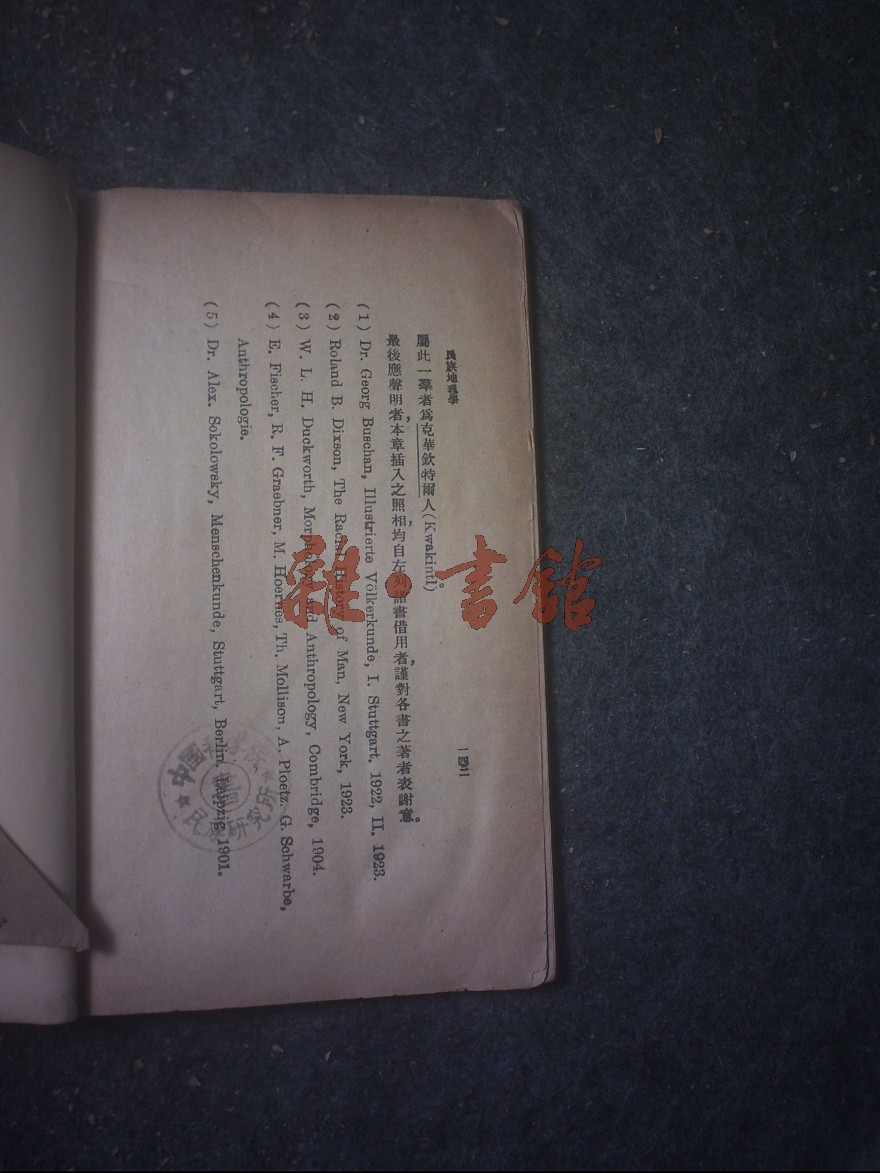 民族地理學
一四二
屬此一羣者，爲克華欽特爾人(Kwakintl)。
最後應聲明者，本章插入之照相，均自左列諸書借用者，謹對各書之著者表謝意。
(1) Dr. Georg Buschan, Illustrierte Völkerkunde, I. Stuttgart. 1922, II. 1923.
(2) Roland B. Dixson, The Racial History of Man, New York, 1923.
(3) W. L. H. Duckworth, Morphology and Anthropology, Combridge, 1904.
(4) E. Fischer, R. F. Graebner, M. Hoernes, Th. Mollison, A. Ploetz. G. Schwarbe,
Anthropologie.
(5) Dr. Alex. Sokolowsky, Menschenkunde, Stuttgart, Berlin. Leipzig 1901.
雜·書館
中國
民族